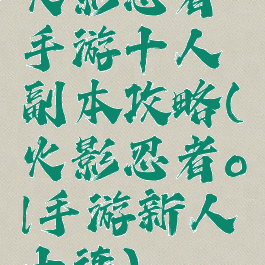 火影忍者
手游十人
副本攻略(
火影忍者。
|手游新人